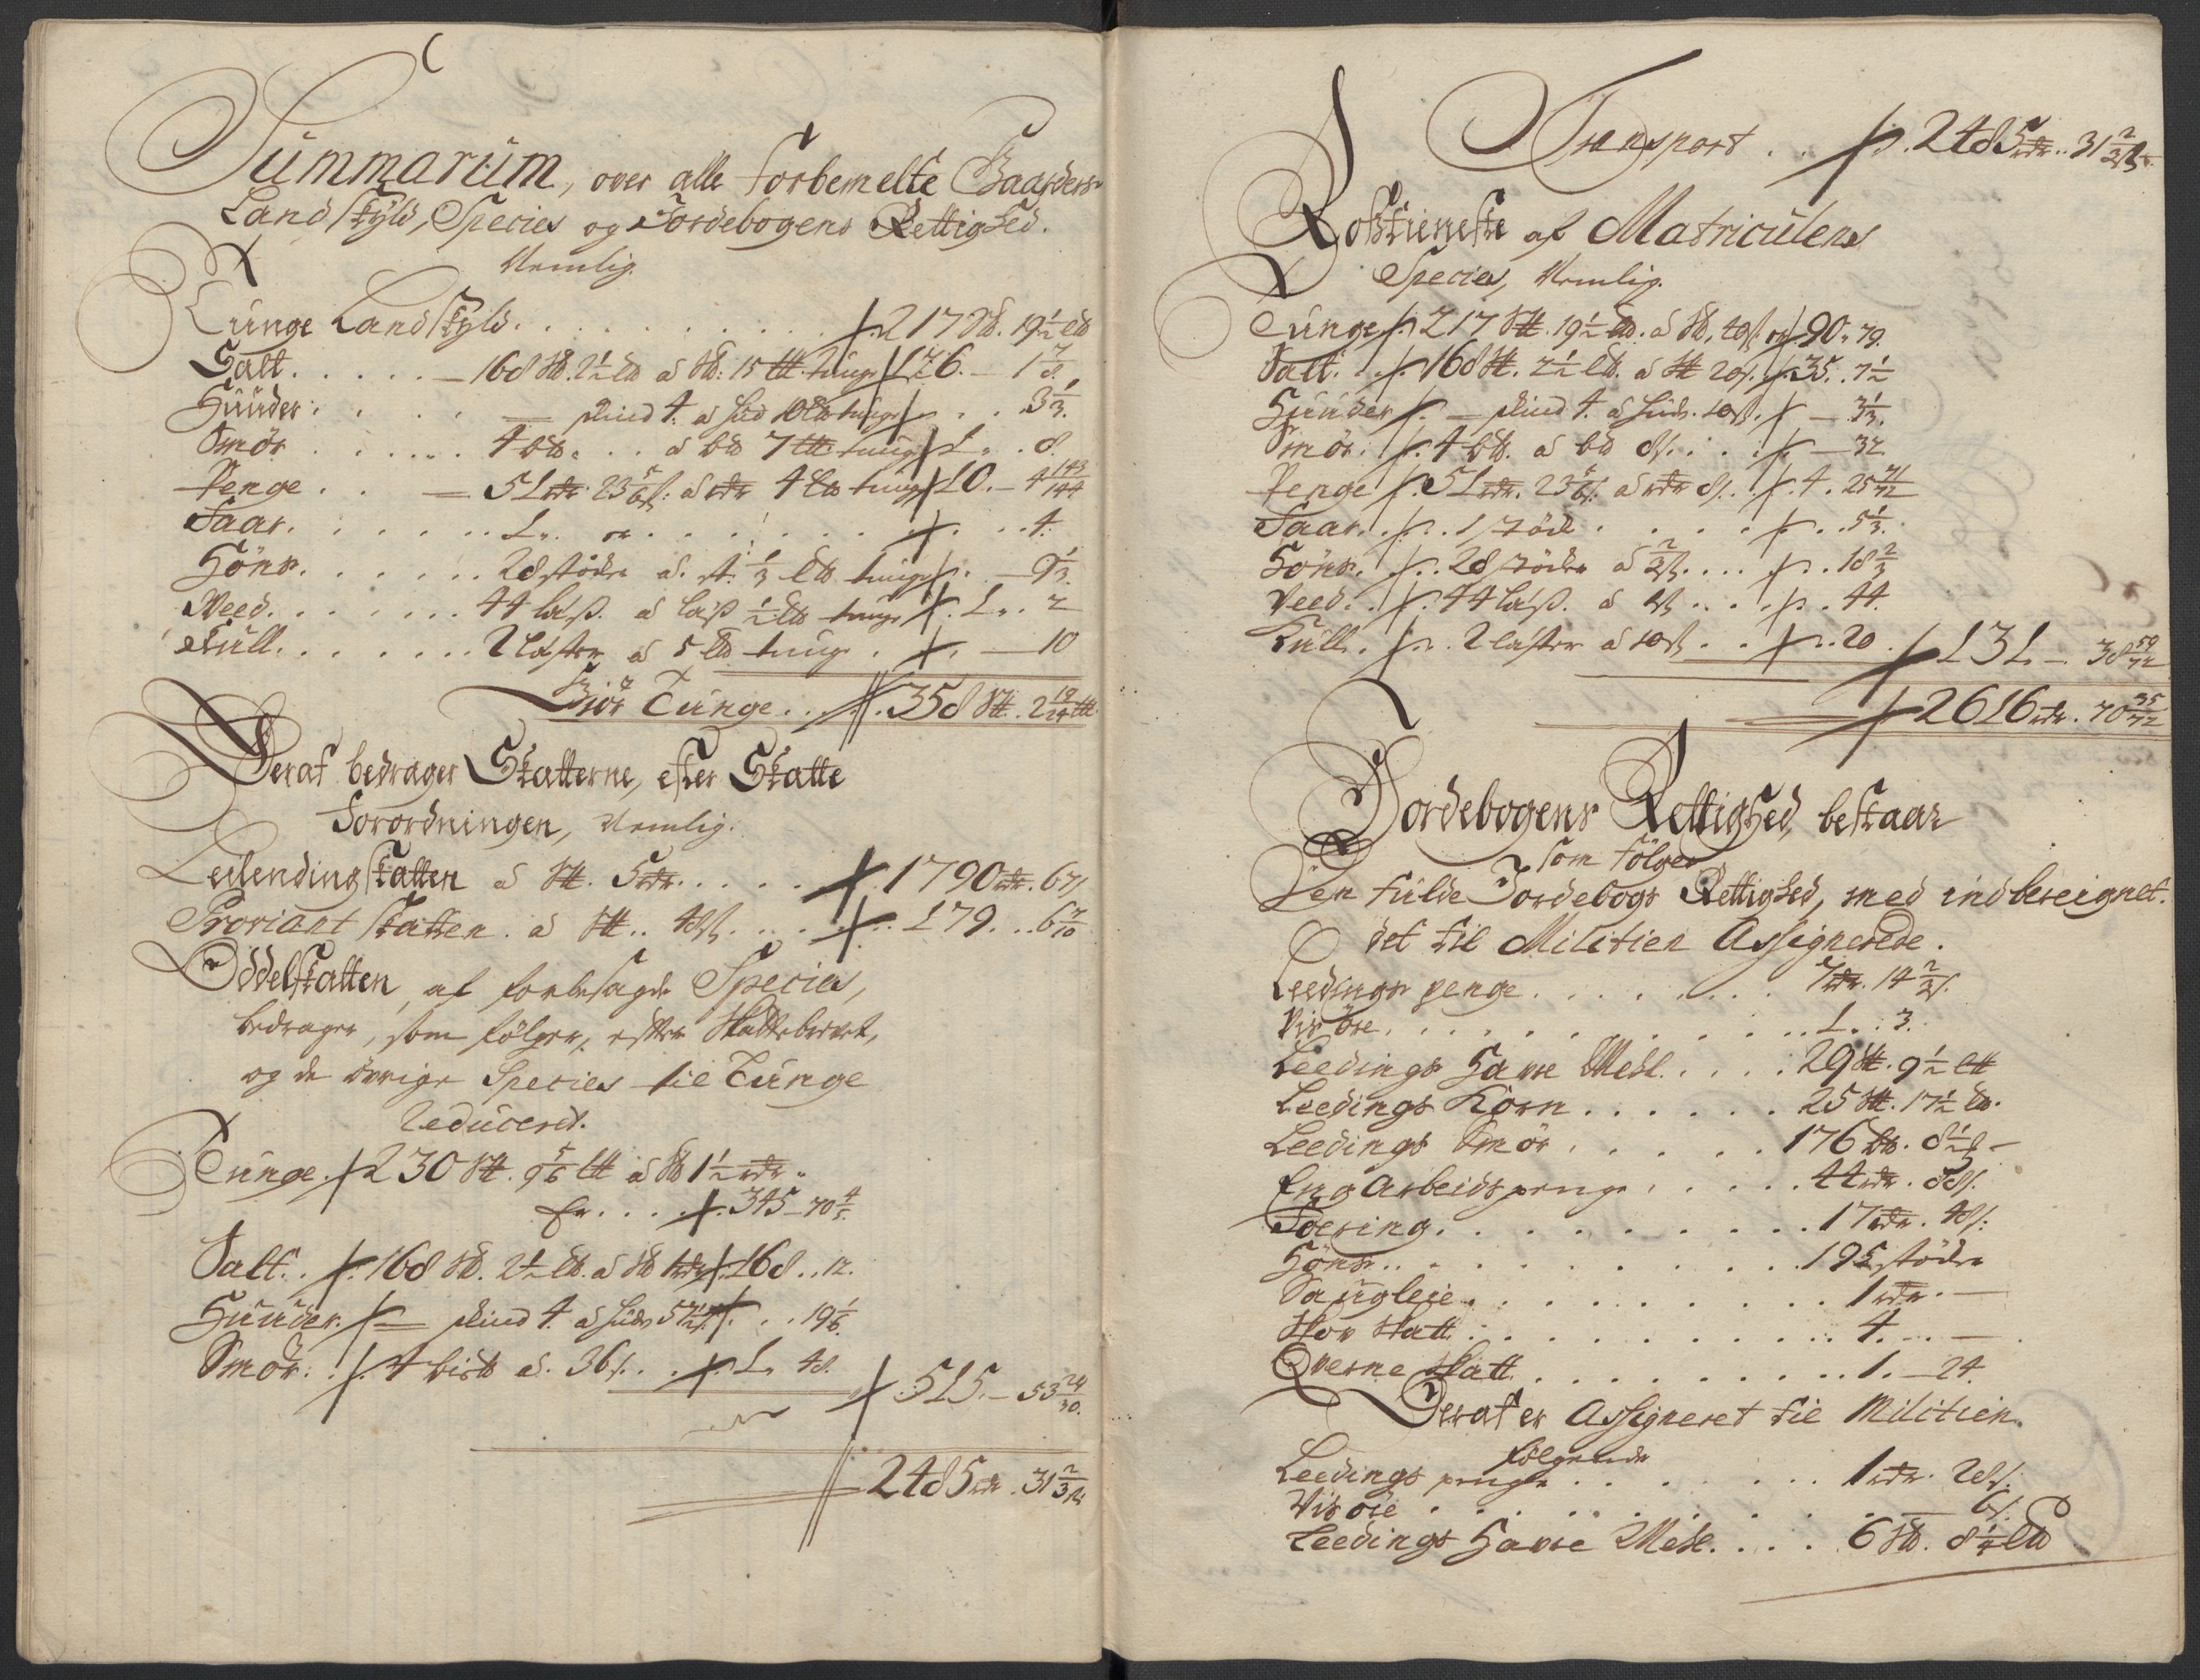 Summarum, over alle Forbemelte Gaarders
Landskyld, Species og Jordebogens Rettighed.
Nemlig.
Tunge Landskyld . . . . . . . . . 217 S℔. 19½ ℔
Salt . . . . . — 168 S℔. 2½ ℔ a S℔: 15 ℔ tunge 126. — 1 7/8.
Huuder . . . . — skind 4. a hud 10 ℔ tunge . . . 3 1/3.
Smør . . . . . . 4 b℔. . . a b℔ 7 ℔ tunge 1. . 8.
Penge . . — 51 rdr. 23 5/6 s: a rdr 4 ℔ tunge 10. — 4 143/144
Faar . . . . . . 1. er . . . . . . . . . 4.
Høns . . . . . . 28 støder a. st. 1/3 ℔ tunge . — 9 1/3.
Weed . . . . . . . 44 læss. a læss ½ ℔ tunge . 1. . 2
Kull . . . . . . . 2 læster a 5 ℔ tunge . . — 10
Giør Tunge . . . 358 S℔. 2 19/24 ℔.
Deraf bedrager Skatterne, efter Skatte
Forordningen, Nemlig.
Leilendingskatten a S℔. 5 rdr. . . . . 1790 rdr. 67 s
Proviant skatten. a S℔. . 48 s. . . . . 179. . . 6 7/10
Oddelskatten, af forbesagde Species,
bedrager, som følger, efter Skattebrevet,
og de øvrige Species til Tunge
Reduceret.
Tunge. 230 S℔. 9 5/6 ℔ a S℔ 1½ rdr.
Er . . . . 345 — 70 4/5.
Salt. . 168 S℔. 2½ ℔. a S℔ 1 rdr 168. . 12.
Huuder. — skind 4. a hude 57½ s . . 19 1/6.
Smør. . 4 bis℔ a. 36 s. . . 1. 48.
515. — 53 29/30.
2485 rdr. 31 2/3 s
Transport . . 2485 rdr. . 31 2/3 s.
Rosstieneste af Matriculens
Species, Nemlig.
Tunge 217 S℔. 19½ ℔. a S℔. 40 s. er 90. 79.
Salt. . 168 S℔. 2½ ℔. a S℔ 20 s. 35. . 7½
Huuder . — skind 4. a hude. 10 s. — 3 1/3.
Smør: . 4 b℔. a b℔ 8 s. . . . — 32
Penge . 51 rdr. 23 5/6 s. a rdr 8 s. . . 4. 25 71/72
Faar. . . . 1 støk . . . . . . . 5 1/3.
Høns. . . 28 støder a 2/3 s. . . . . . 18 2/3
Veed. . . 44 læss. a 1 s . . . . . . 44.
Kull. . . . 2 læster a 10 s . . . . 20 . 131. — 38 59/72
2616 rdr. 70 35/72
Jordebogens Rettighed bestaar
som følger
Den fulde Jordebogs Rettighed, med indbereignet.
det til Militien Assignerede.
Leedings penge . . . . . . . . 7 rdr. 14 2/3 s.
Vis øre . . . . . . . . . . . . . 1. : 3.
Leedings Havre Meel . . . . . 29 S℔. 9½ ℔
Leedings Korn . . . . . . 25 S℔. 17½ ℔.
Leedings Smør . . . . . 176 b℔. 8½ —
Eng Arbeids penge . . . . . 44 rdr. 88 s.
Foering . . . . . . . . . . 17 rdr. 48 s:
Høns . . . . . . . . . . . 195 støder
Saugleie . . . . . . . . . . 1 rdr. —
Skov skatt . . . . . . . . . . . 4. . . —
Qverne skatt . . . . . . . . . . 1. — 24.
Deraf er Assigneret til Militien
følgende
Leedings penge . . . . . . . . 1 rdr. 28 s:
Vis øre . . . . . . . . . . — 6 s.
Leedings Havre Meel . . . . 6 S℔. 8¼ ℔